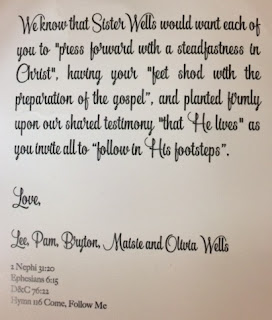 We know that Sister Wells would want each of
you to "press forward with a steadfastness in
Christ", having your "feet shod with the
preparation of the gospel", and planted firmly
upon our shared testimony "that He lives" as
you invite all to "follow in His footsteps".
Love,
Lee, Pam, Bryton, Maisie and Olivia Wells
2 Nephi 31:20
Ephesians 6:15
D&C 76:22
Hymn 116 Come, Follow Me